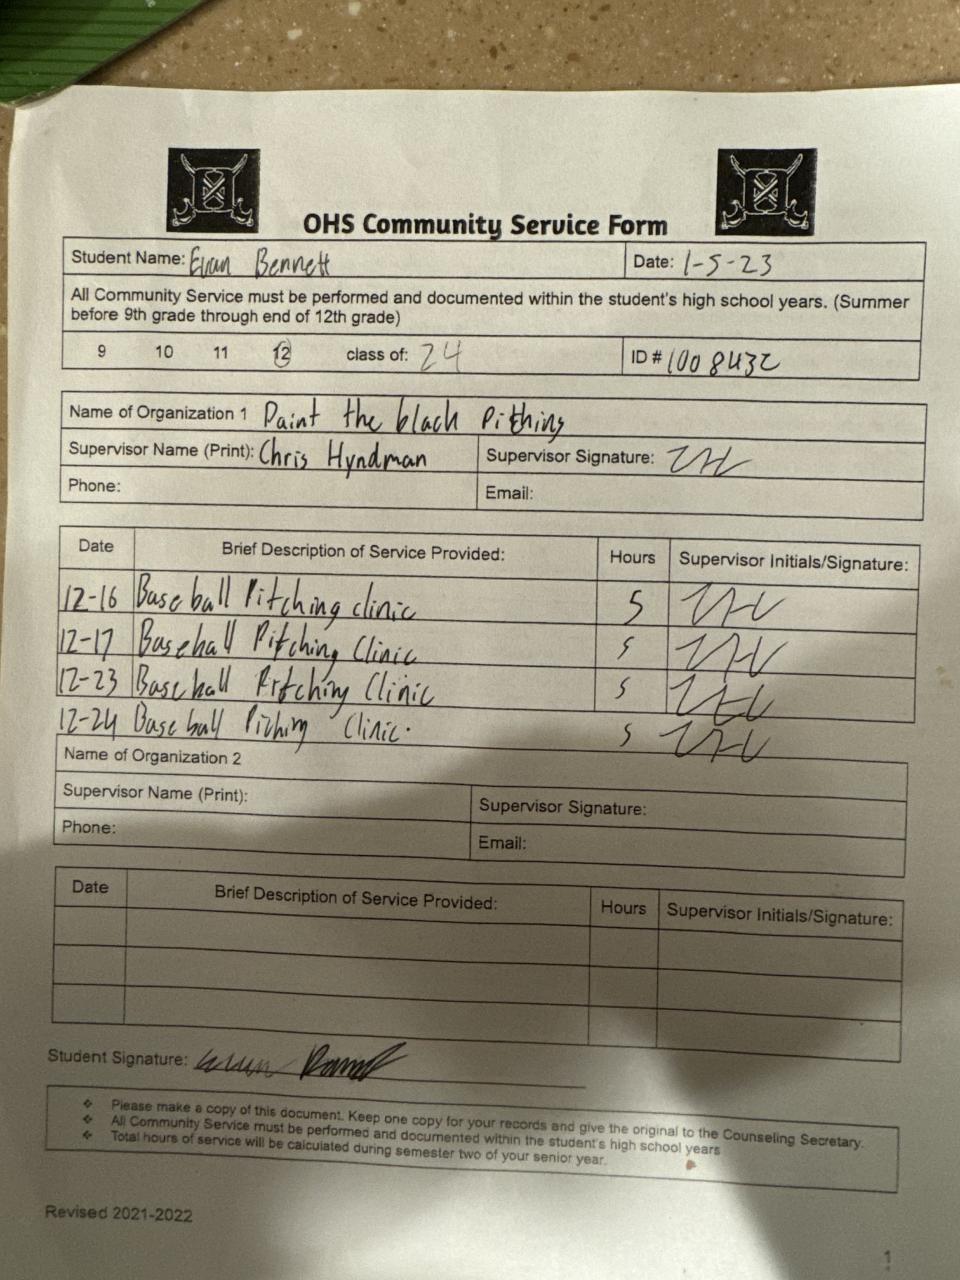 OHS Community Service Form
Student Name: Evan Bennett Date: 1-5-23
All Community Service must be performed and documented within the student's high school years. (Summer
before 9th grade through end of 12th grade)
9 10 11 12 class of: 24 ID # 1008432
Name of Organization 1 Paint the black Pithing
Supervisor Name (Print): Chris Hyndman Supervisor Signature:
Phone: Email:
Date Brief Description of Service Provided: Hours Supervisor Initials/Signature:
12-16 Baseball Pitching clinic 5
12-17 Baseball Pitching Clinic 5
12-23 Baseball Pitching Clinic 5
12-24 Baseball Pithing Clinic. 5
Name of Organization 2
Supervisor Name (Print): Supervisor Signature:
Phone: Email:
Date Brief Description of Service Provided: Hours Supervisor Initials/Signature:
Student Signature:
❖ Please make a copy of this document. Keep one copy for your records and give the original to the Counseling Secretary.
❖ All Community Service must be performed and documented within the student's high school years
❖ Total hours of service will be calculated during semester two of your senior year.
Revised 2021-2022
1